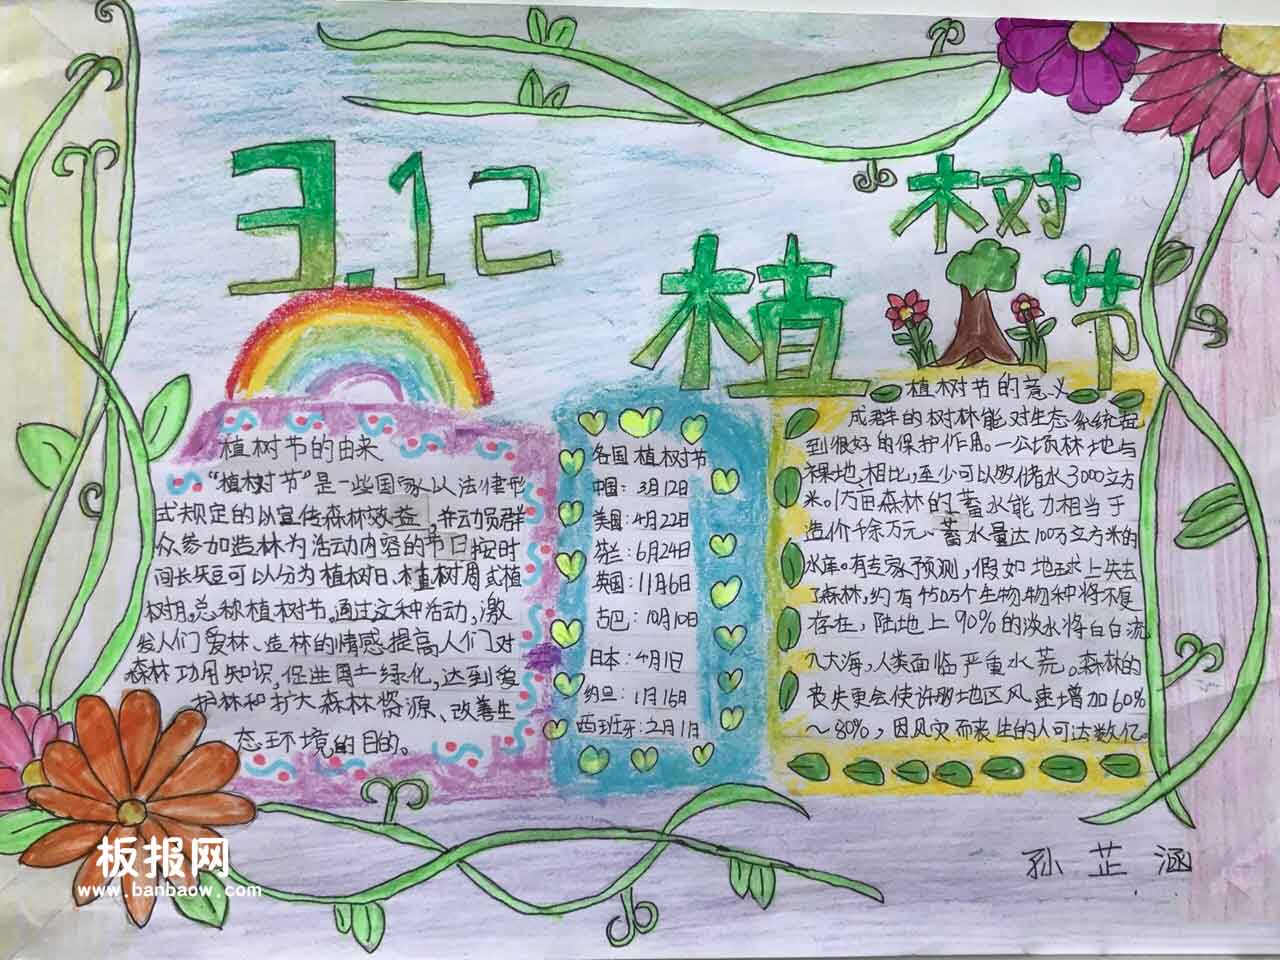 3.12
植树节
植树节的由来
“植树节”是一些国家以法律形
式规定的以宣传森林效益,并动员群
众参加造林为活动内容的节日按时
间长短可以分为植树日、植树周或植
树月。总称植树节。通过这种活动,激
发人们爱林、造林的情感提高人们对
森林功用知识,促进国土绿化,达到爱
护林和扩大森林资源、改善生
态环境的目的。
各国植树节
中国:3月12日
美国:4月22日
芬兰:6月24日
英国:11月6日
古巴:10月10日
日本:4月1日
约旦:1月16日
西班牙:2月1日
植树节的意义
成群的树林能对生态系统起
到很好的保护作用。一公顷林地与
裸地,相比,至少可以多储水3000立方
米。1万亩森林的蓄水能力相当于
造价千余万元、蓄水量达100万立方米的
水库。有专家预测,假如地球上失去
了森林,约有450万个生物物种将不复
存在,陆地上90%的淡水将白白流
入大海,人类面临严重水荒。森林的
丧失更会使许多地区风速增加60%
～80%,因风灾而丧生的人可达数亿。
孙芷涵
板报网
www.banbaow.com